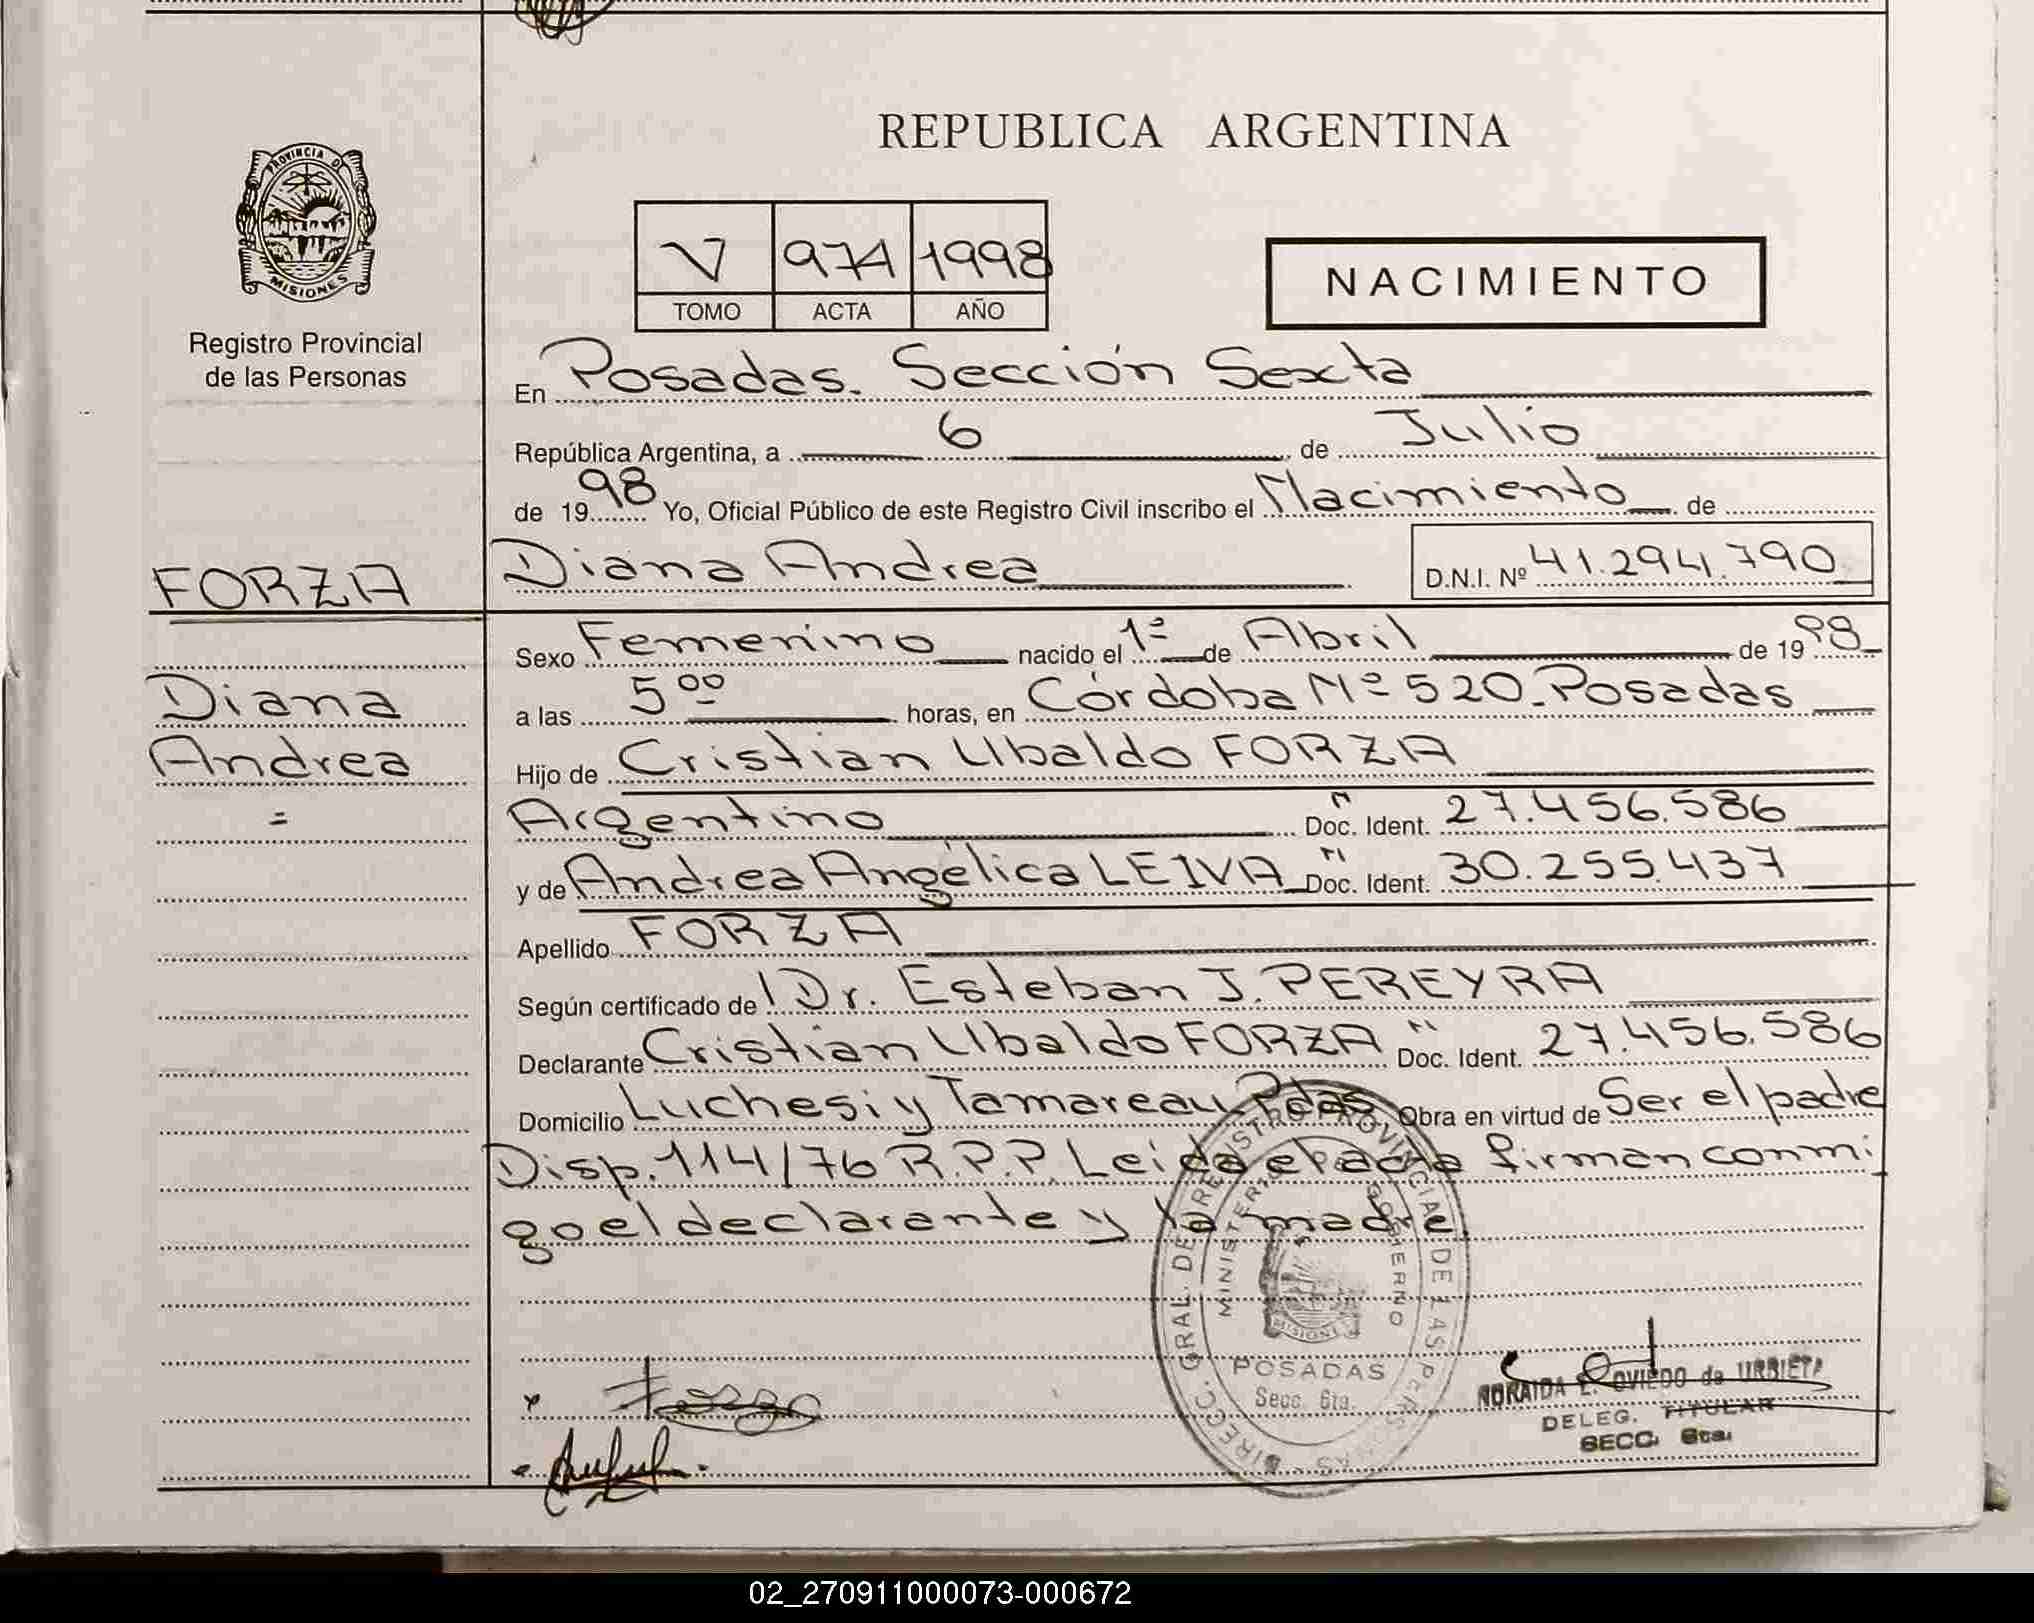 REPUBLICA ARGENTINA
PROVINCIA DE
MISIONES
Registro Provincial
de las Personas
V 974 1998
TOMO ACTA AÑO
NACIMIENTO
En Posadas. Sección Sexta
República Argentina, a 6 de Julio
de 1998 Yo, Oficial Público de este Registro Civil inscribo el Nacimiento de
FORZA
Diana Andrea D.N.I. Nº 41.294.790
Diana
Andrea
=
Sexo Femenino nacido el 1º de Abril de 1998
a las 5 00 horas, en Córdoba Nº 520. Posadas
Hijo de Cristian Ubaldo FORZA
Argentino " Doc. Ident. 27.456.586
y de Andrea Angélica LEIVA " Doc. Ident. 30.255.437
Apellido FORZA
Según certificado del Dr. Esteban J. PEREYRA
Declarante Cristian Ubaldo FORZA " Doc. Ident. 27.456.586
Domicilio Luchesi y Tamareau Pdas Obra en virtud de Ser el padre
Disp. 114/76 R.P.P. Leida el acta firman conmi
go el declarante y la madre.
DIRECC. GRAL. DE REGISTRO PROVINCIAL DE LAS PERSONAS
MINISTERIO GOBIERNO
MISIONES
POSADAS
Secc. 6ta.
Forza
NORAIDA E. OVIEDO de URRIETA
DELEG. TITULAR
SECC. 6ta.
02_270911000073-000672